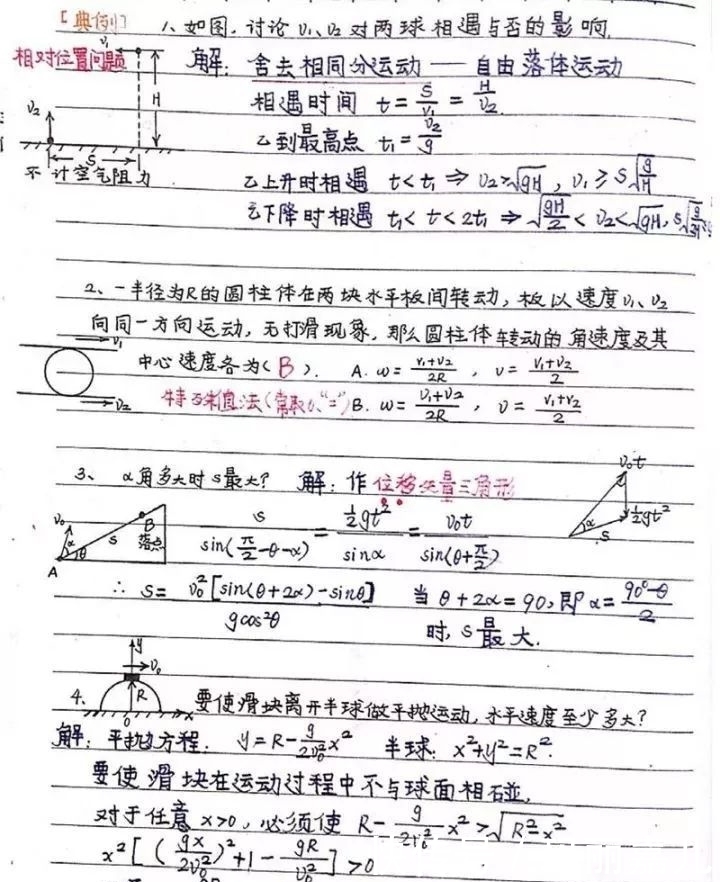 [典例] 1、如图,讨论 v₁、v₂ 对两球相遇与否的影响.
相对位置问题
v₁
H
v₂
S
不计空气阻力
解: 舍去相同分运动 — 自由落体运动
相遇时间 t = S/v₁ = H/v₂.
乙到最高点 t₁ = v₂/g
乙上升时相遇 t < t₁ ⇒ v₂ > √gH , v₁ ≥ S√(g/H)
乙下降时相遇 t₁ < t < 2t₁ ⇒ √(gH/2) < v₂ < √gH,
2、一半径为R的圆柱体在两块水平板间转动, 板以速度v₁、v₂
向同一方向运动, 无打滑现象, 那么圆柱体转动的角速度及其
中心速度各为( B ). A. ω = (v₁+v₂)/2R , v = (v₁+v₂)/2
v₁
v₂
特殊值法(常取0、"=") B. ω = (v₁+v₂)/2R , v = (v₁+v₂)/2
3、 α角多大时 s最大? 解: 作位移矢量三角形
v₀
α
θ
s
B
落点
A
s/sin(π/2-θ-α) = ½gt²/sinα = v₀t/sin(θ+π/2)
v₀t
½gt²
α
s
∴ S = v₀²[sin(θ+2α)-sinθ]/gcos²θ 当 θ+2α=90, 即 α = (90°-θ)/2
时, s最大.
y
v₀
R
0
x
4、 要使滑块离开半球做平抛运动, 水平速度至少多大?
解: 平抛方程: y = R - g/2v₀² x² 半球: x²+y²=R².
要使滑块在运动过程中不与球面相碰,
对于任意 x>0, 必须使 R - g/2v₀² x² > √(R²-x²)
x²[(gx/2v₀²)²+1 - gR/v₀²] > 0